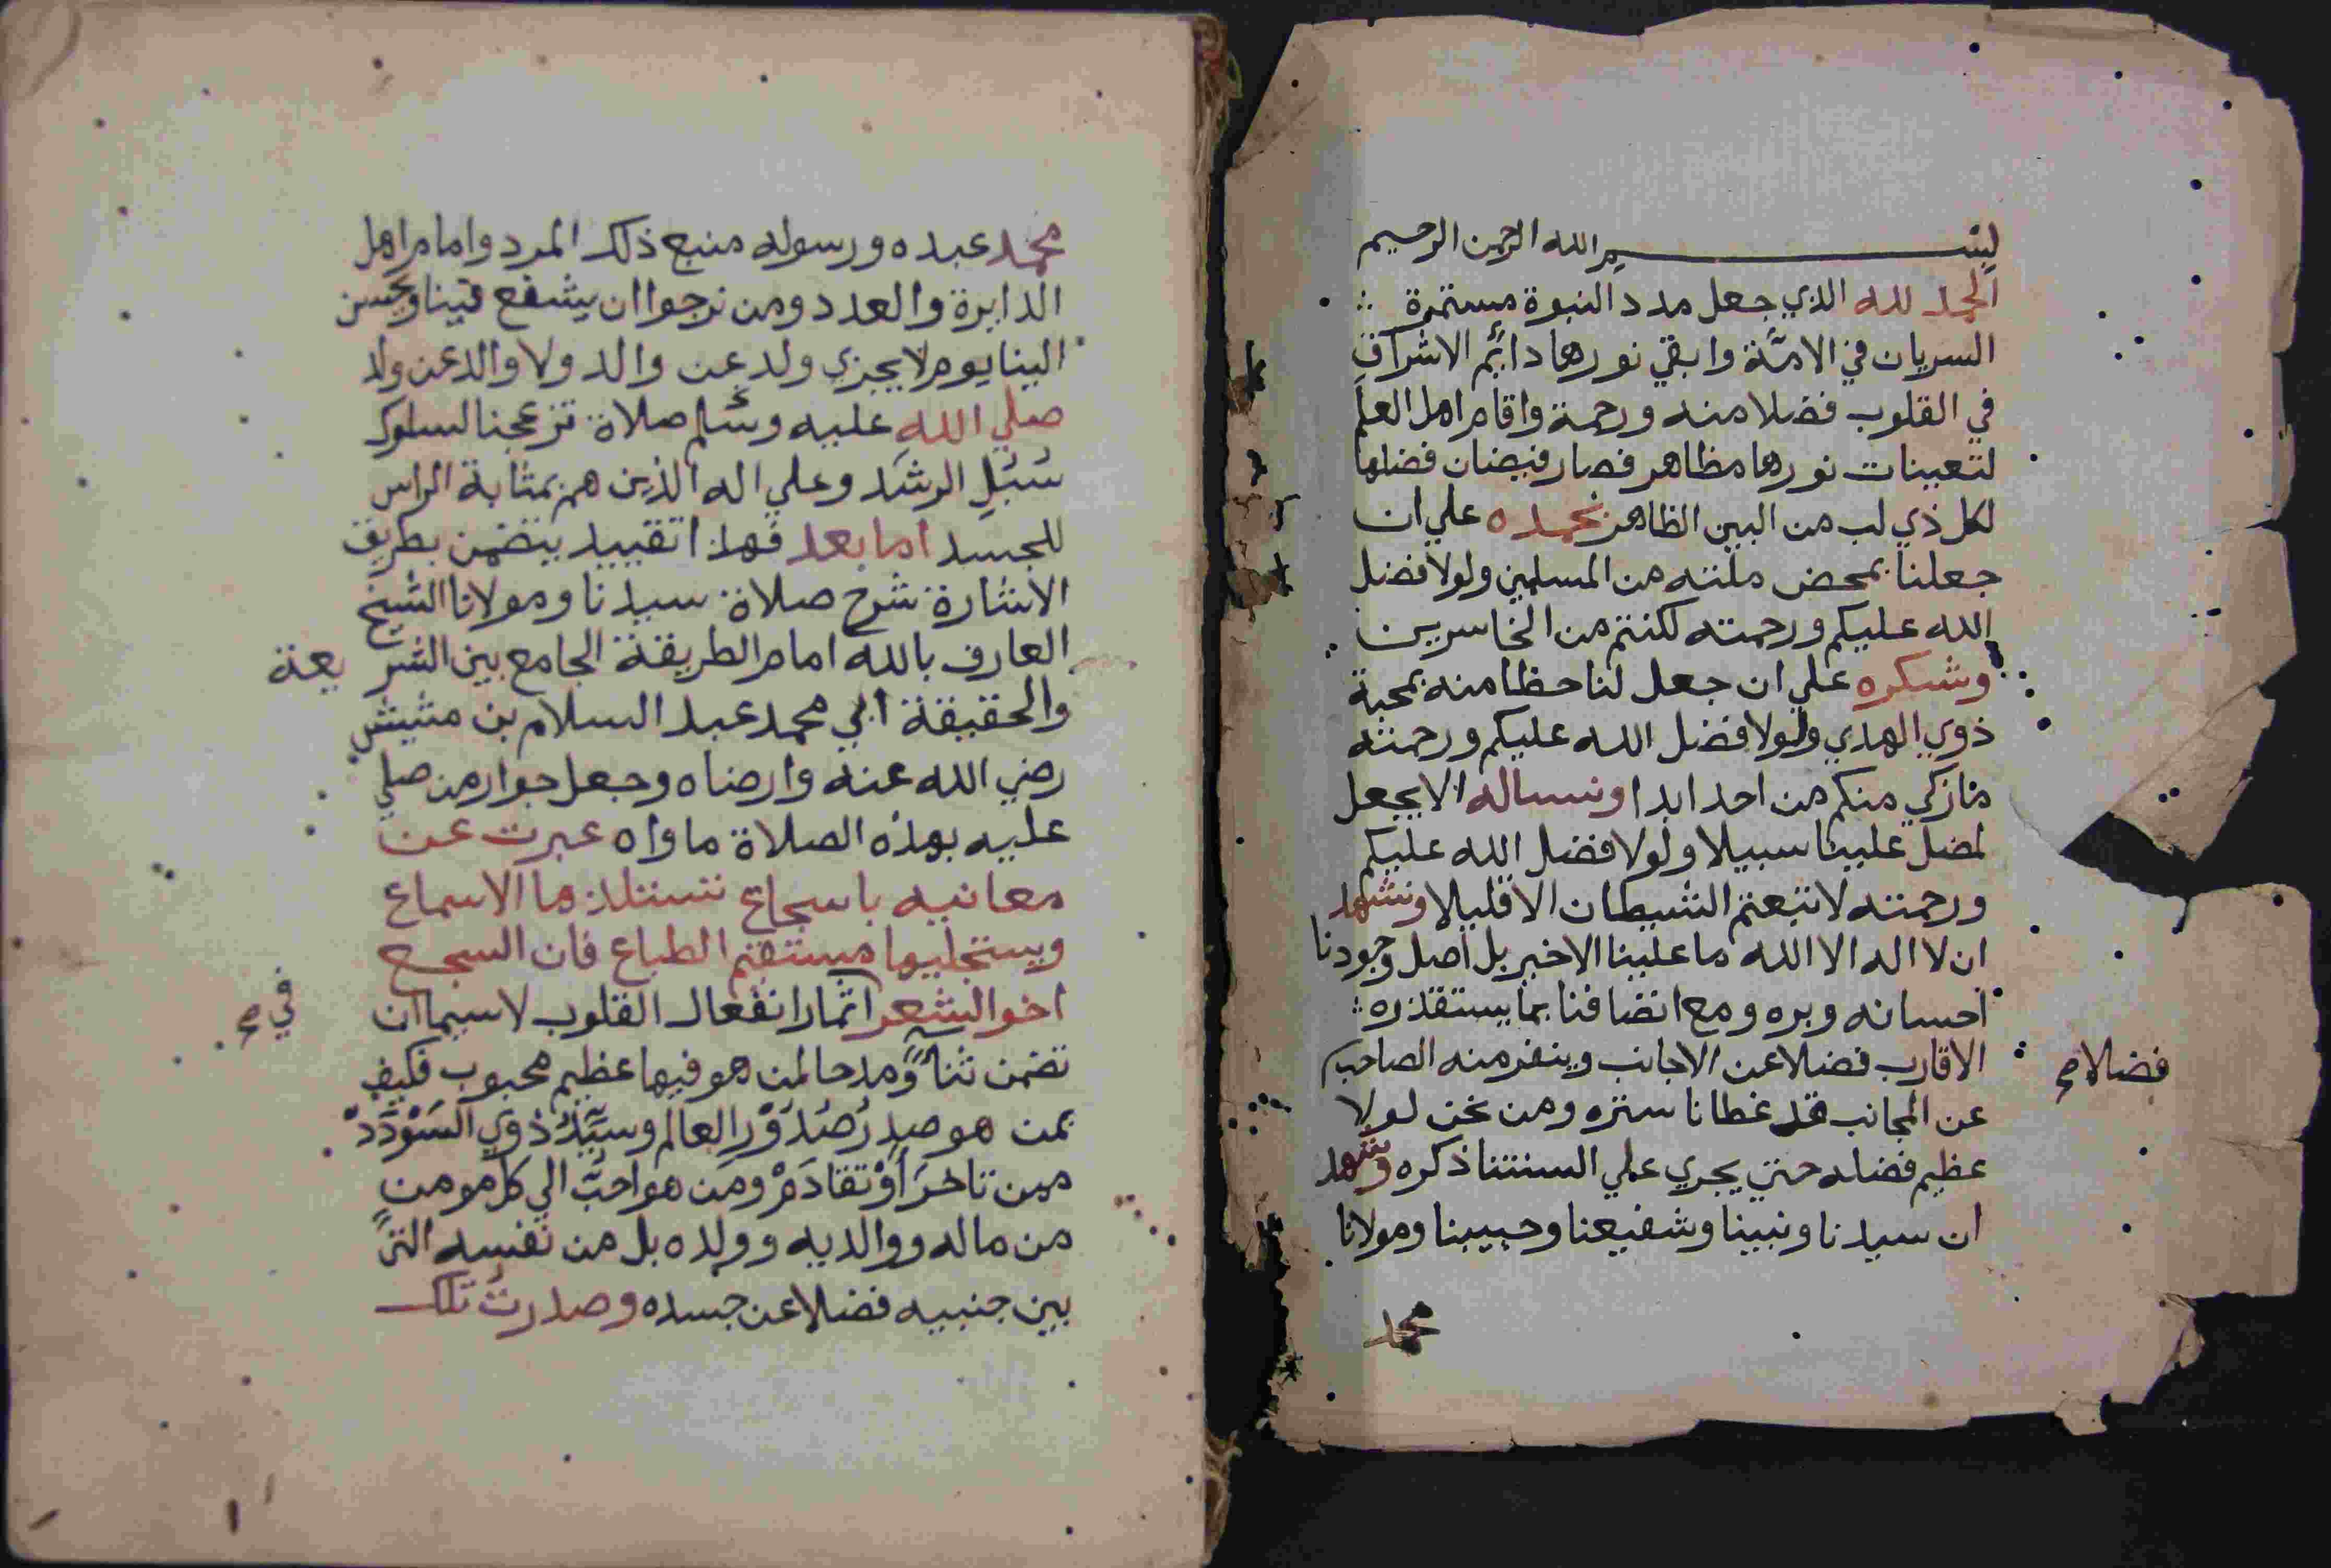 بسم الله الرحمن الرحيم
الحمد لله الذي جعل مدد النبوة مستمرة
السريان في الامة وابقي نورها دائم الاشراق
في القلوب فضلا منه ورحمة واقام اهل العلم
لتعينات نورها مظاهر فصار فيضان فضلها
لكل ذي لب من البين الظاهر نحمده علي ان
جعلنا بمحض منته من المسلمين ولولا فضل
الله عليكم ورحمته لكنتم من الخاسرين
وشكره علي ان جعل لنا حظا منه بمحبة
ذوي الهدي ولولا فضل الله عليكم ورحمته
مازكي منكم من احد ابدا ونساله الا يجعل
لمضل علينا سبيلا ولولا فضل الله عليكم
ورحمته لاتبعتم الشيطان الا قليلا ونشهد
ان لا اله الا الله ما علينا الاخير بل اصل وجودنا
احسانه وبره ومع اتصافنا بما يستقذره
الاقارب فضلا عن الاجانب وينفر منه الصاحب
فضلا صح
عن المجانب قد غطانا ستره ومن نحن لولا
عظيم فضله حتي يجري علي السنتنا ذكره ونشهد
ان سيدنا ونبينا وشفيعنا وحبيبنا ومولانا
محمد
محمد عبده ورسوله منبع ذلك المدد وامام اهل
الدايرة والعدد ومن نرجوا ان يشفع فينا ويحسن
الينا يوم لا يجزي ولد عن والد ولا والد عن ولد
صلي الله عليه وسلم صلاة تزعجنا لسلوك
سبل الرشد وعلي اله الذين هم بمثابة الراس
للجسد اما بعد فهذا تقييد يتضمن بطريق
الاشارة شرح صلاة سيدنا ومولانا الشيخ
العارف بالله امام الطريقة الجامع بين الشريعة
والحقيقة ابي محمد عبد السلام بن مشيش
رضي الله عنه وارضاه وجعل جوار من صلي
عليه بهذه الصلاة ماواه عبرت عن
معانيه باسجاع تستلذها الاسماع
ويستحليها مستقيم الطباع فان السجع
اخو الشعر اثمارا نفعال القلوب لاسيما ان
في صح
تضمن ثناً ومدحا لمن هو فيها عظيم محبوب فكيف
بمن هو صدر صُدُوْر العالم وسيد ذوي السودد
ممن تاخر أوْ تقادم ومن هو احب الي كل مومن
من ماله ووالديه وولده بل من نفسه التي
بين جنبيه فضلا عن جسده وصدرت تلك